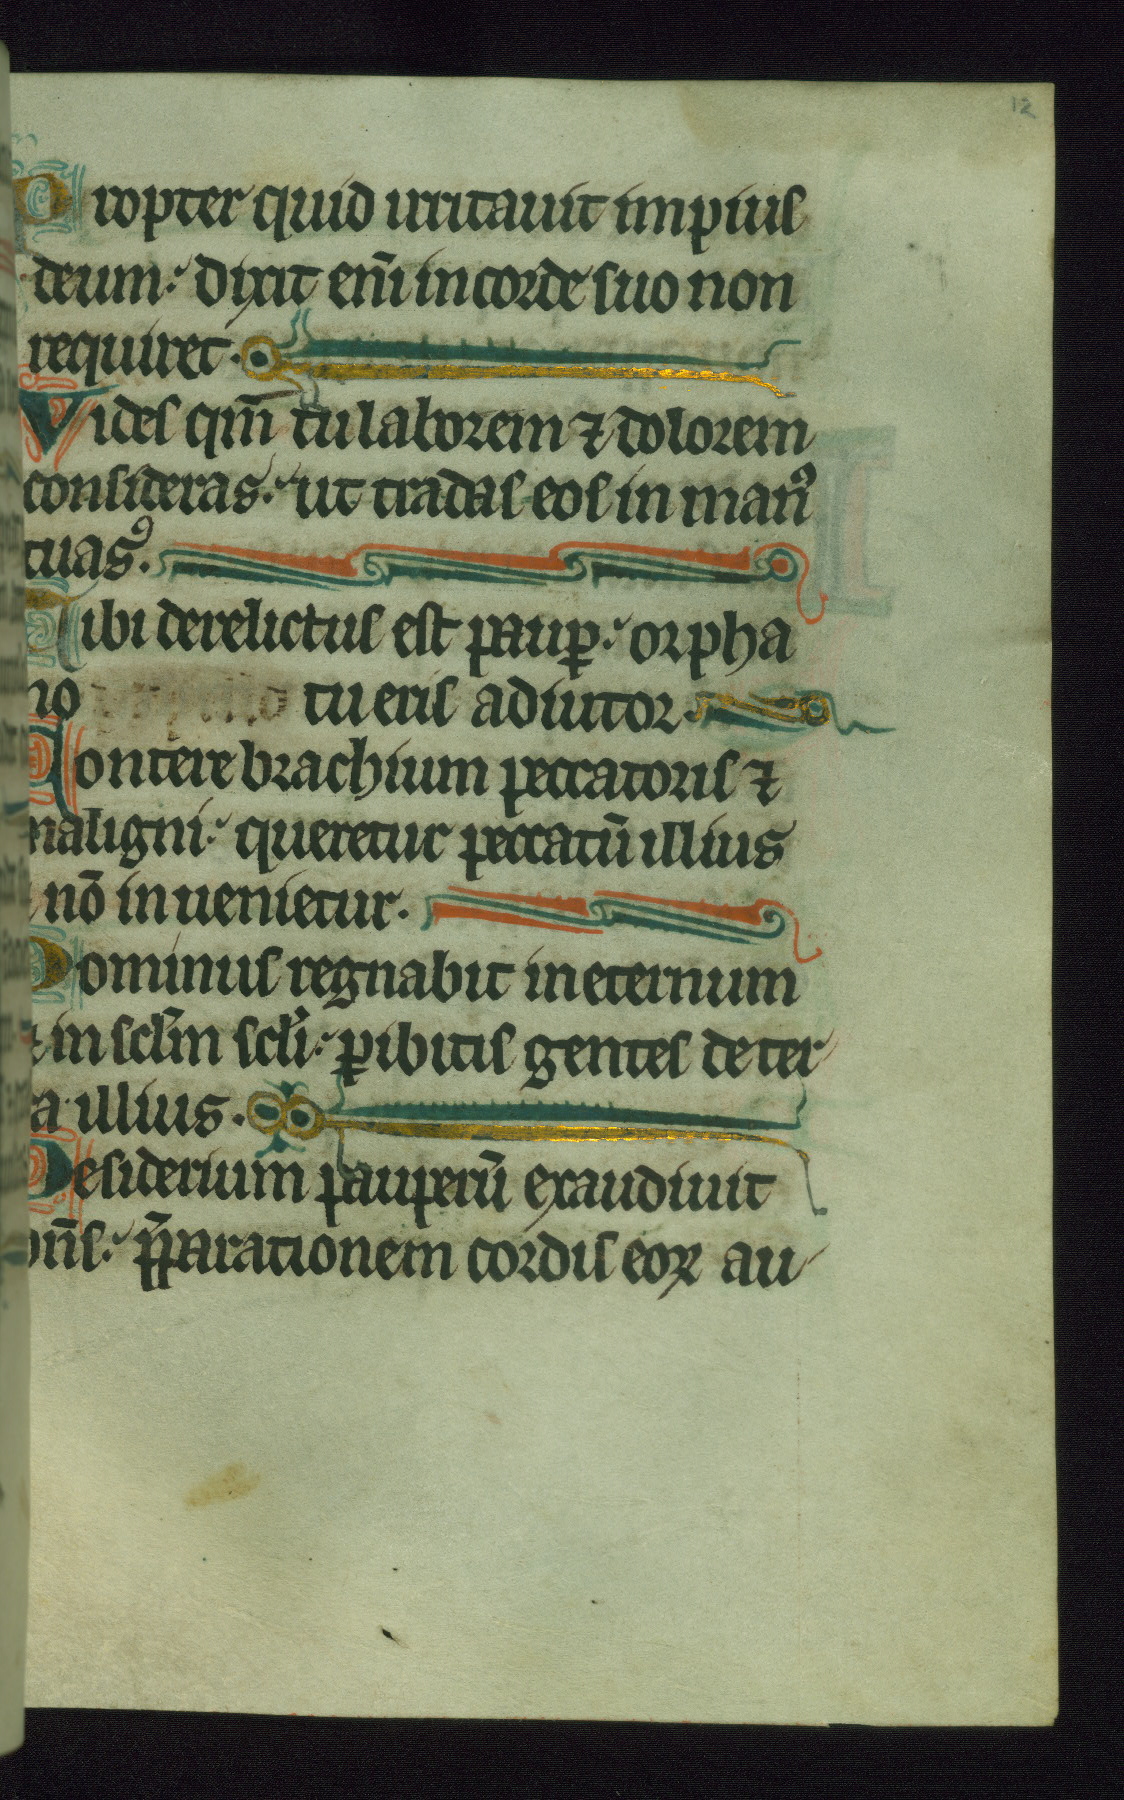 12
Propter quid irritauit impius
deum: dixit eni᷃ in corde suo non
requiret.
Vides qm̄ tu laborem ⁊ dolorem
consideras: ut tradas eos in manꝰ
tuasꝰ.
Tibi derelictus est paup̱: orpha
no tu eris adiutor.
Contere brachium peccatoris ⁊
maligni: queretur peccatū illius
nō inuenietur.
Dominus regnabit in eternum
in scl̄m scl̄i: ꝑibitis gentes de ter
ra illius.
Desiderium pauperū exaudiuit
dn̄s: p̄parationem cordis eoꝝ au